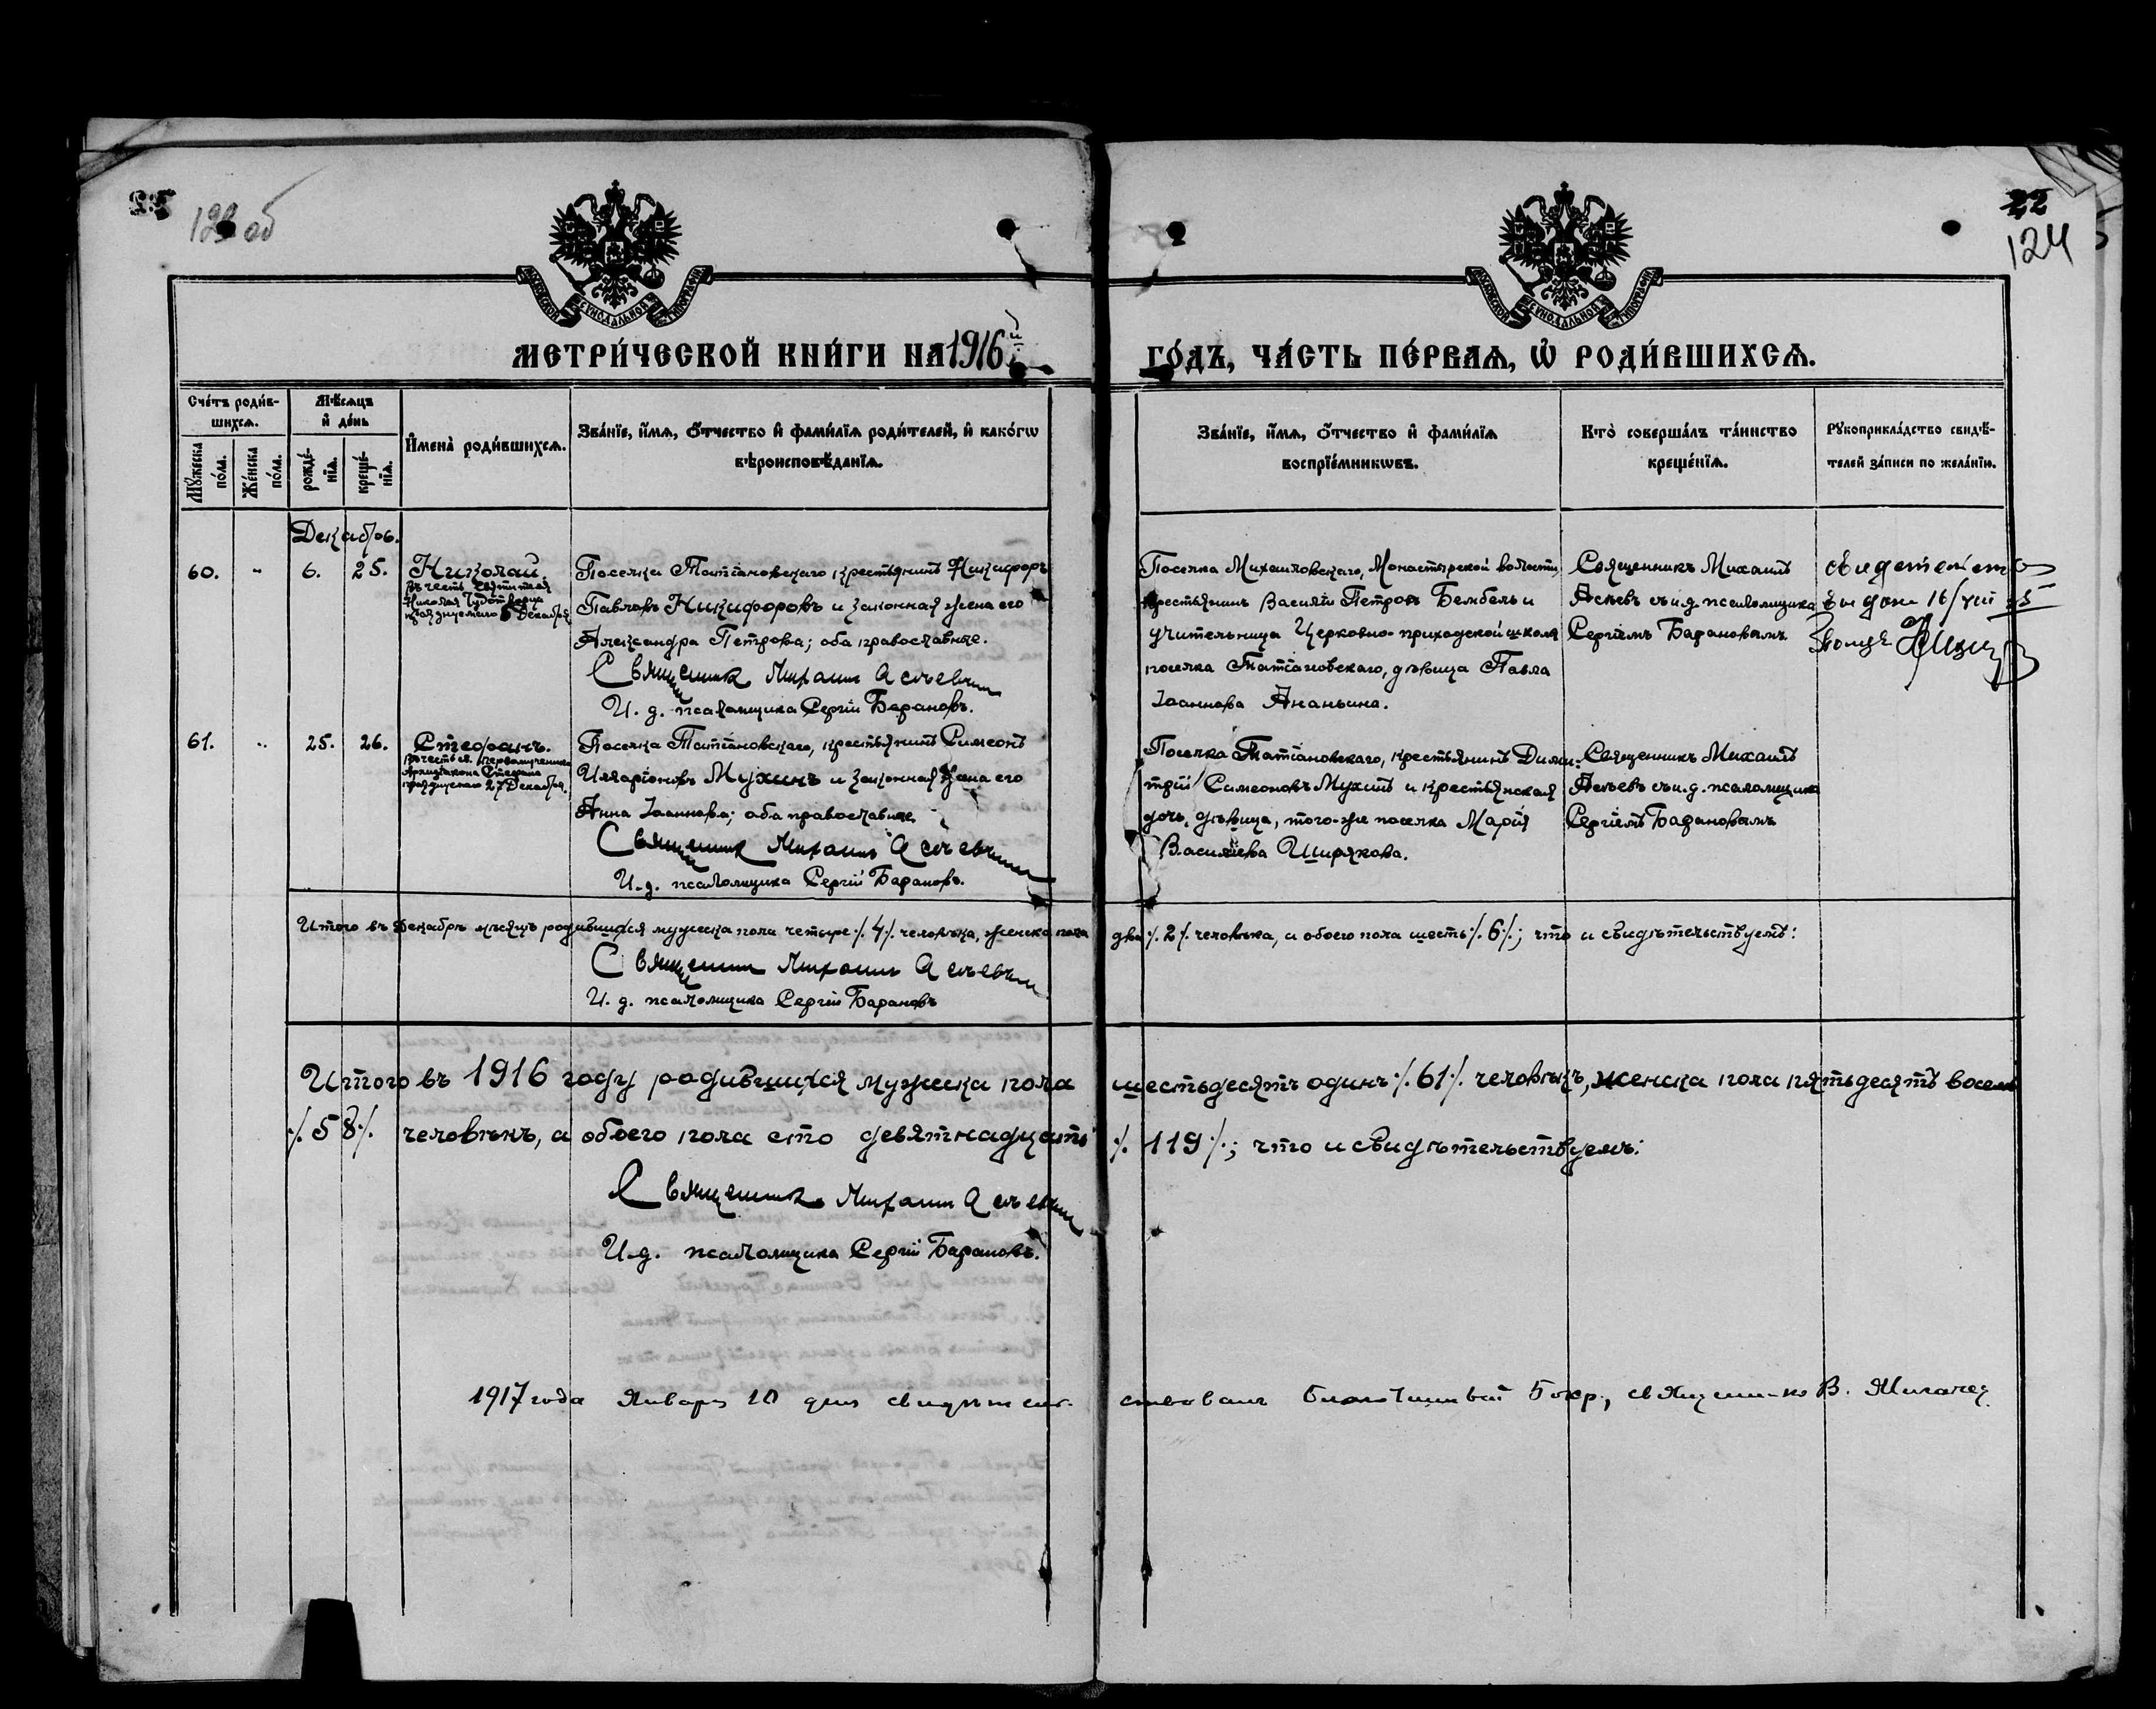 123 об
22
124
МОСКОВСКОЙ СѴНОДАЛЬНОЙ ТИПОГРАФІИ
МОСКОВСКОЙ СѴНОДАЛЬНОЙ ТИПОГРАФІИ
МЕТРИ́ЧЕСКОЙ КНИ́ГИ НА 1916й
ГО́ДЪ, ЧА́СТЬ ПЕ́РВАѦ, Ѡ҆ РОДИ́ВШИХСѦ.
Сче́тъ роди́в-
шихсѧ.
Мꙋ́жеска по́ла.
Же́нска по́ла.
Мѣ́сѧцъ
и҆ де́нь
рожде́-
нїѧ.
креще́-
нїѧ.
И҆мена̀ роди́вшихсѧ.
Зва́нїе, и҆́мѧ, ѻ҆́тчество и҆ фами́лїѧ роди́телей, и҆ како́гѡ
вѣроисповѣ́данїѧ.
Зва́нїе, и҆́мѧ, ѻ҆́тчество и҆ фами́лїѧ
воспрїе́мникѡвъ.
Кто̀ соверша́лъ та́инство
креще́нїѧ.
Рꙋкоприкла́дство свидѣ́-
телей за́писи по жела́нїю.
Декабрь.
60. „ 6. 25. Николай.
въ честь Святителя
Николая Чудотворца
празднуемаго 6 Декабря
Поселка Татiановскаго крестьянинъ Никифоръ
Павловъ Никифоровъ и законная жена его
Александра Петрова; оба православные.
Священникъ Михаилъ Асѣевъ
И. д. псаломщика Сергiй Барановъ.
Поселка Михаиловскаго, Монастырской волости,
крестьянинъ Василiй Петровъ Бембель и
учительница Церковно-приходской школы
поселка Татiановскаго, дѣвица Павла
Iоаннова Ананьина.
Священникъ Михаилъ
Асѣевъ съ и.д. псаломщика
Сергiемъ Барановымъ
свидетельство
выдано 16/VIII
61. „ 25. 26. Стефанъ.
въ честь св. первомученика
Архидiакона Стефана
празднуемаго 27 Декабря.
Поселка Татiановскаго, крестьянинъ Симеонъ
Иларiоновъ Мухинъ и законная жена его
Анна Iоаннова; оба православные
Священникъ Михаилъ Асѣевъ
И. д. псаломщика Сергiй Барановъ.
Поселка Татiановскаго, крестьянинъ Дими-
трiй Симеоновъ Мухинъ и крестьянская
дочь, дѣвица, того-же поселка Марiя
Василiева Ширякова.
Священникъ Михаилъ
Асѣевъ съ и.д. псаломщика
Сергiемъ Барановымъ
Итого въ Декабрѣ мѣсяцѣ родившихся мужеска пола четыре ⁒ 4 ⁒ человѣка, женска пола два ⁒ 2 ⁒ человѣка, и обоего пола шесть ⁒ 6 ⁒; что и свидѣтельствуемъ:
Священникъ Михаилъ Асѣевъ
И. д. псаломщика Сергiй Барановъ
Итого въ 1916 году родившихся мужеска пола шестьдесятъ одинъ ⁒ 61 ⁒ человѣкъ, женска пола пятьдесятъ восемь
⁒ 58 ⁒ человѣкъ, а обоего пола сто девятнадцать ⁒ 119 ⁒; что и свидѣтельствуемъ:
Священникъ Михаилъ Асѣевъ
И. д. псаломщика Сергiй Барановъ.
1917 года Января 10 дня свидѣтельствовалъ Благочинный 5 окр, священникъ В.